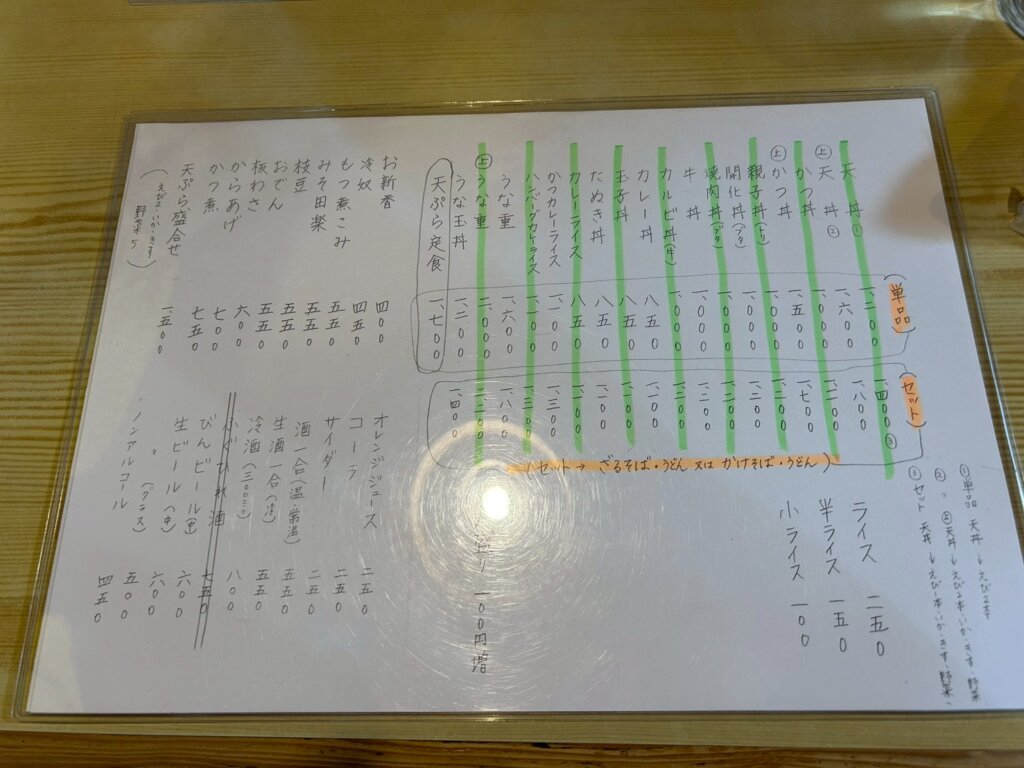 ①単品 天丼→えび2本
② 〃 ㊤天丼→えび2本・いか・きす・野菜
③セット 天丼→えび1本・いか・きす・野菜、
(単品) (セット)
天丼① 一、二〇〇 一、四〇〇③
㊤天丼② 一、六〇〇 一、八〇〇
かつ丼 一、〇〇〇 一、二〇〇
㊤かつ丼 一、五〇〇 一、七〇〇
親子丼(トリ) 一、〇〇〇 一、二〇〇
開化丼(ブタ) 一、〇〇〇 一、二〇〇
焼肉丼(ブタ) 一、〇〇〇 一、二〇〇
牛丼 一、〇〇〇 一、二〇〇
カルビ丼(牛) 一、〇〇〇 一、二〇〇
カレー丼 八五〇 一、一〇〇
玉子丼 八五〇 一、一〇〇
たぬき丼 八五〇 一、一〇〇
カレーライス 八五〇 一、一〇〇
かつカレーライス 一、一〇〇 一、三〇〇
ハンバーグカレーライス 一、一〇〇 一、三〇〇
うな重 一、六〇〇 一、八〇〇
㊤うな重 二、〇〇〇 二、二〇〇
うな玉丼 一、二〇〇 一、四〇〇
天ぷら定食 一、七〇〇
(セット→ ざるそば・うどん 又は かけそば・うどん)
ライス 二五〇
半ライス 一五〇
小ライス 一〇〇
盛り 一〇〇円増
お新香 四〇〇
冷奴 四五〇
もつ煮こみ 五五〇
みそ田楽 五五〇
枝豆 五五〇
おでん 五五〇
板わさ 六〇〇
からあげ 七〇〇
かつ煮 七五〇
天ぷら盛合せ 一、五〇〇
(えび2・いか・きす 野菜5)
オレンジジュース 二五〇
コーラ 二五〇
サイダー 二五〇
酒一合(温・常温) 五五〇
生酒一合(冷) 五五〇
冷酒(三〇〇ミリ) 八〇〇
ふぐひれ酒 七五〇
びんビール(中) 六〇〇
生ビール(中) 六〇〇
〃 (グラス) 五〇〇
ノンアルコール 四五〇